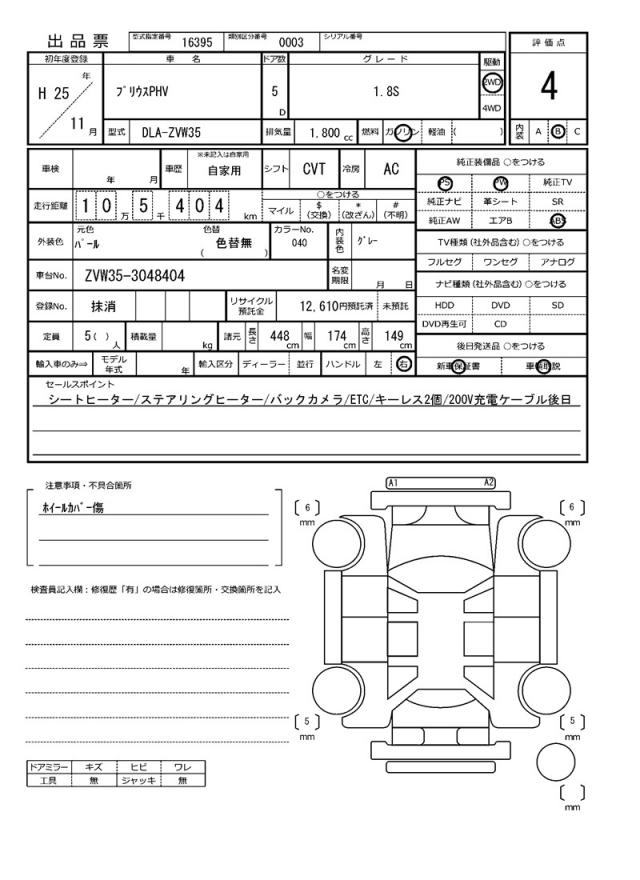 出品票 型式指定番号 16395 類別区分番号 0003 シリアル番号
評価点
4
初年度登録 車名 ドア数 グレード 駆動
H 25 年 11 月
プリウスPHV 5 D 1.8S 2WD
4WD
型式 DLA-ZVW35 排気量 1,800 cc 燃料 ガソリン 軽油 ( )
内装 A B C
車検 年 月 車歴 ※未記入は自家用 自家用 シフト CVT 冷房 AC
走行距離 10 万 5 千 404 km
○をつける
マイル $(交換) *(改ざん) #(不明)
外装色 元色 パール 色替 色替無 ( ) カラーNo. 040 内装色 グレー
車台No. ZVW35-3048404 名変期限 月 日
登録No. 抹消 リサイクル預託金 12,610円預託済 未預託
定員 5( ) 人 積載量 kg 諸元 長さ 448 cm 幅 174 cm 高さ 149 cm
輸入車のみ⇨ モデル年式 年 輸入区分 ディーラー 並行 ハンドル 左 右
純正装備品 ○をつける
PS PW 純正TV
純正ナビ 革シート SR
純正AW エアB ABS
TV種類(社外品含む)○をつける
フルセグ ワンセグ アナログ
ナビ種類(社外品含む)○をつける
HDD DVD SD
DVD再生可 CD
後日発送品 ○をつける
新車保証書 車輌取説
セールスポイント
シートヒーター/ステアリングヒーター/バックカメラ/ETC/キーレス2個/200V充電ケーブル後日
注意事項・不具合箇所
ホイールカバー傷
検査員記入欄：修復歴「有」の場合は修復箇所・交換箇所を記入
ドアミラー キズ ヒビ ワレ
工具 無 ジャッキ 無
A1 A2
6 mm
6 mm
5 mm
5 mm
mm